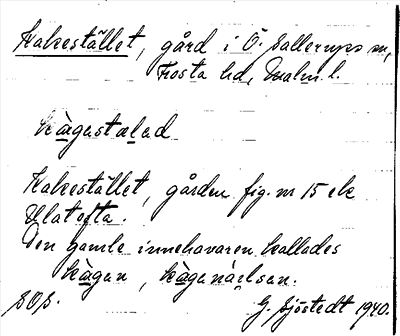 Kakestället, gård i Ö. Sallerups sn,
Frosta hd, Malm. l.
kagastaled
Kakestället, gården fig. nr 15 ek
Ulatofta.
Den gamle innehavaren kallades
kågen, kåganäelsen.
SOS. G. Sjöstedt 1940.